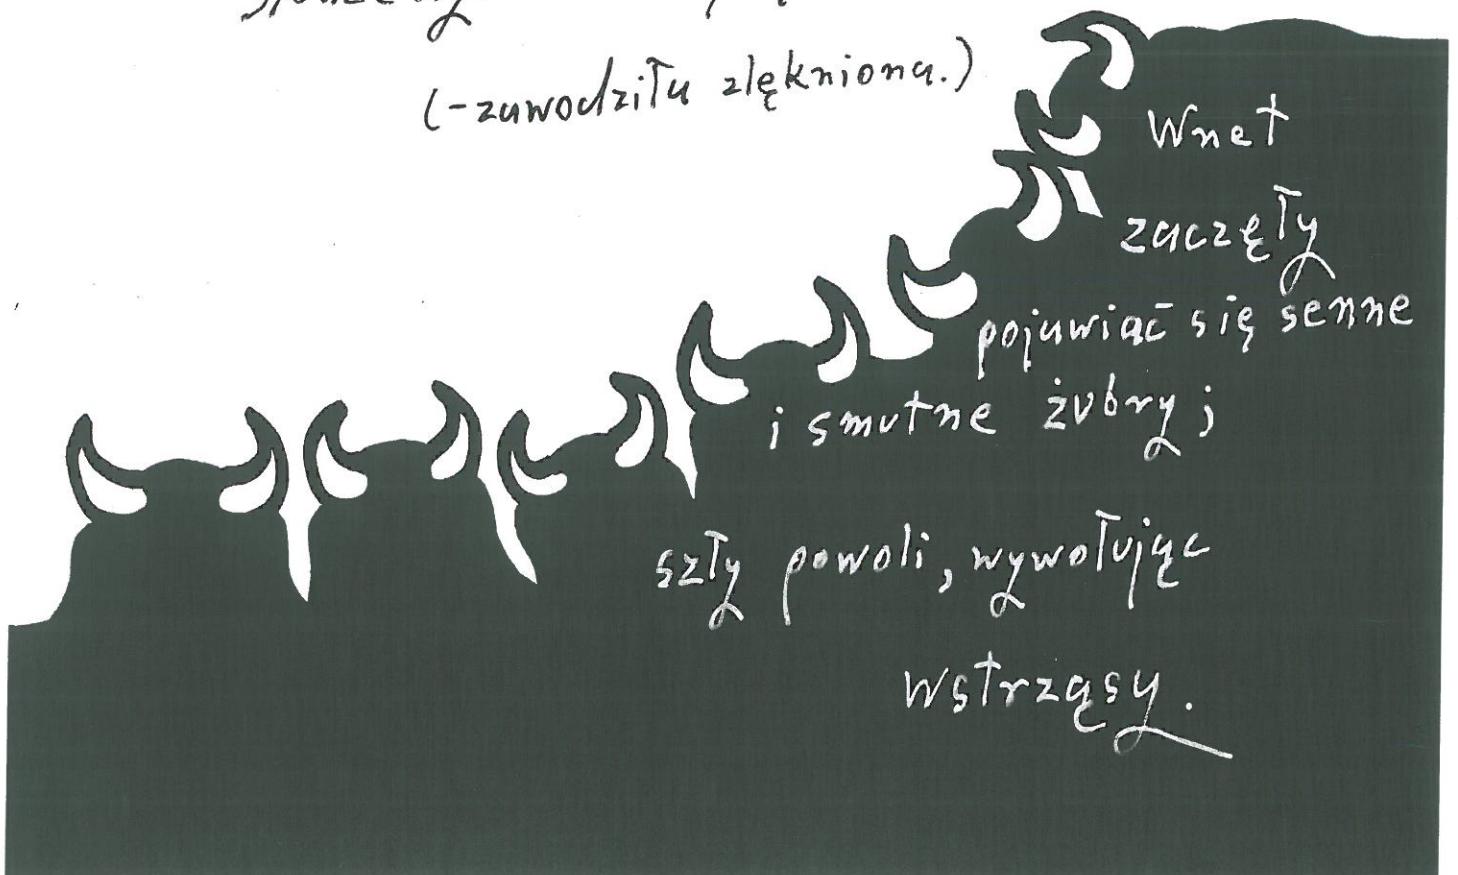 (-zawodziła zlękniona.)
Wnet
zaczęły
pojawiać się senne
i smutne żubry;
szły powoli, wywołując
wstrząsy.